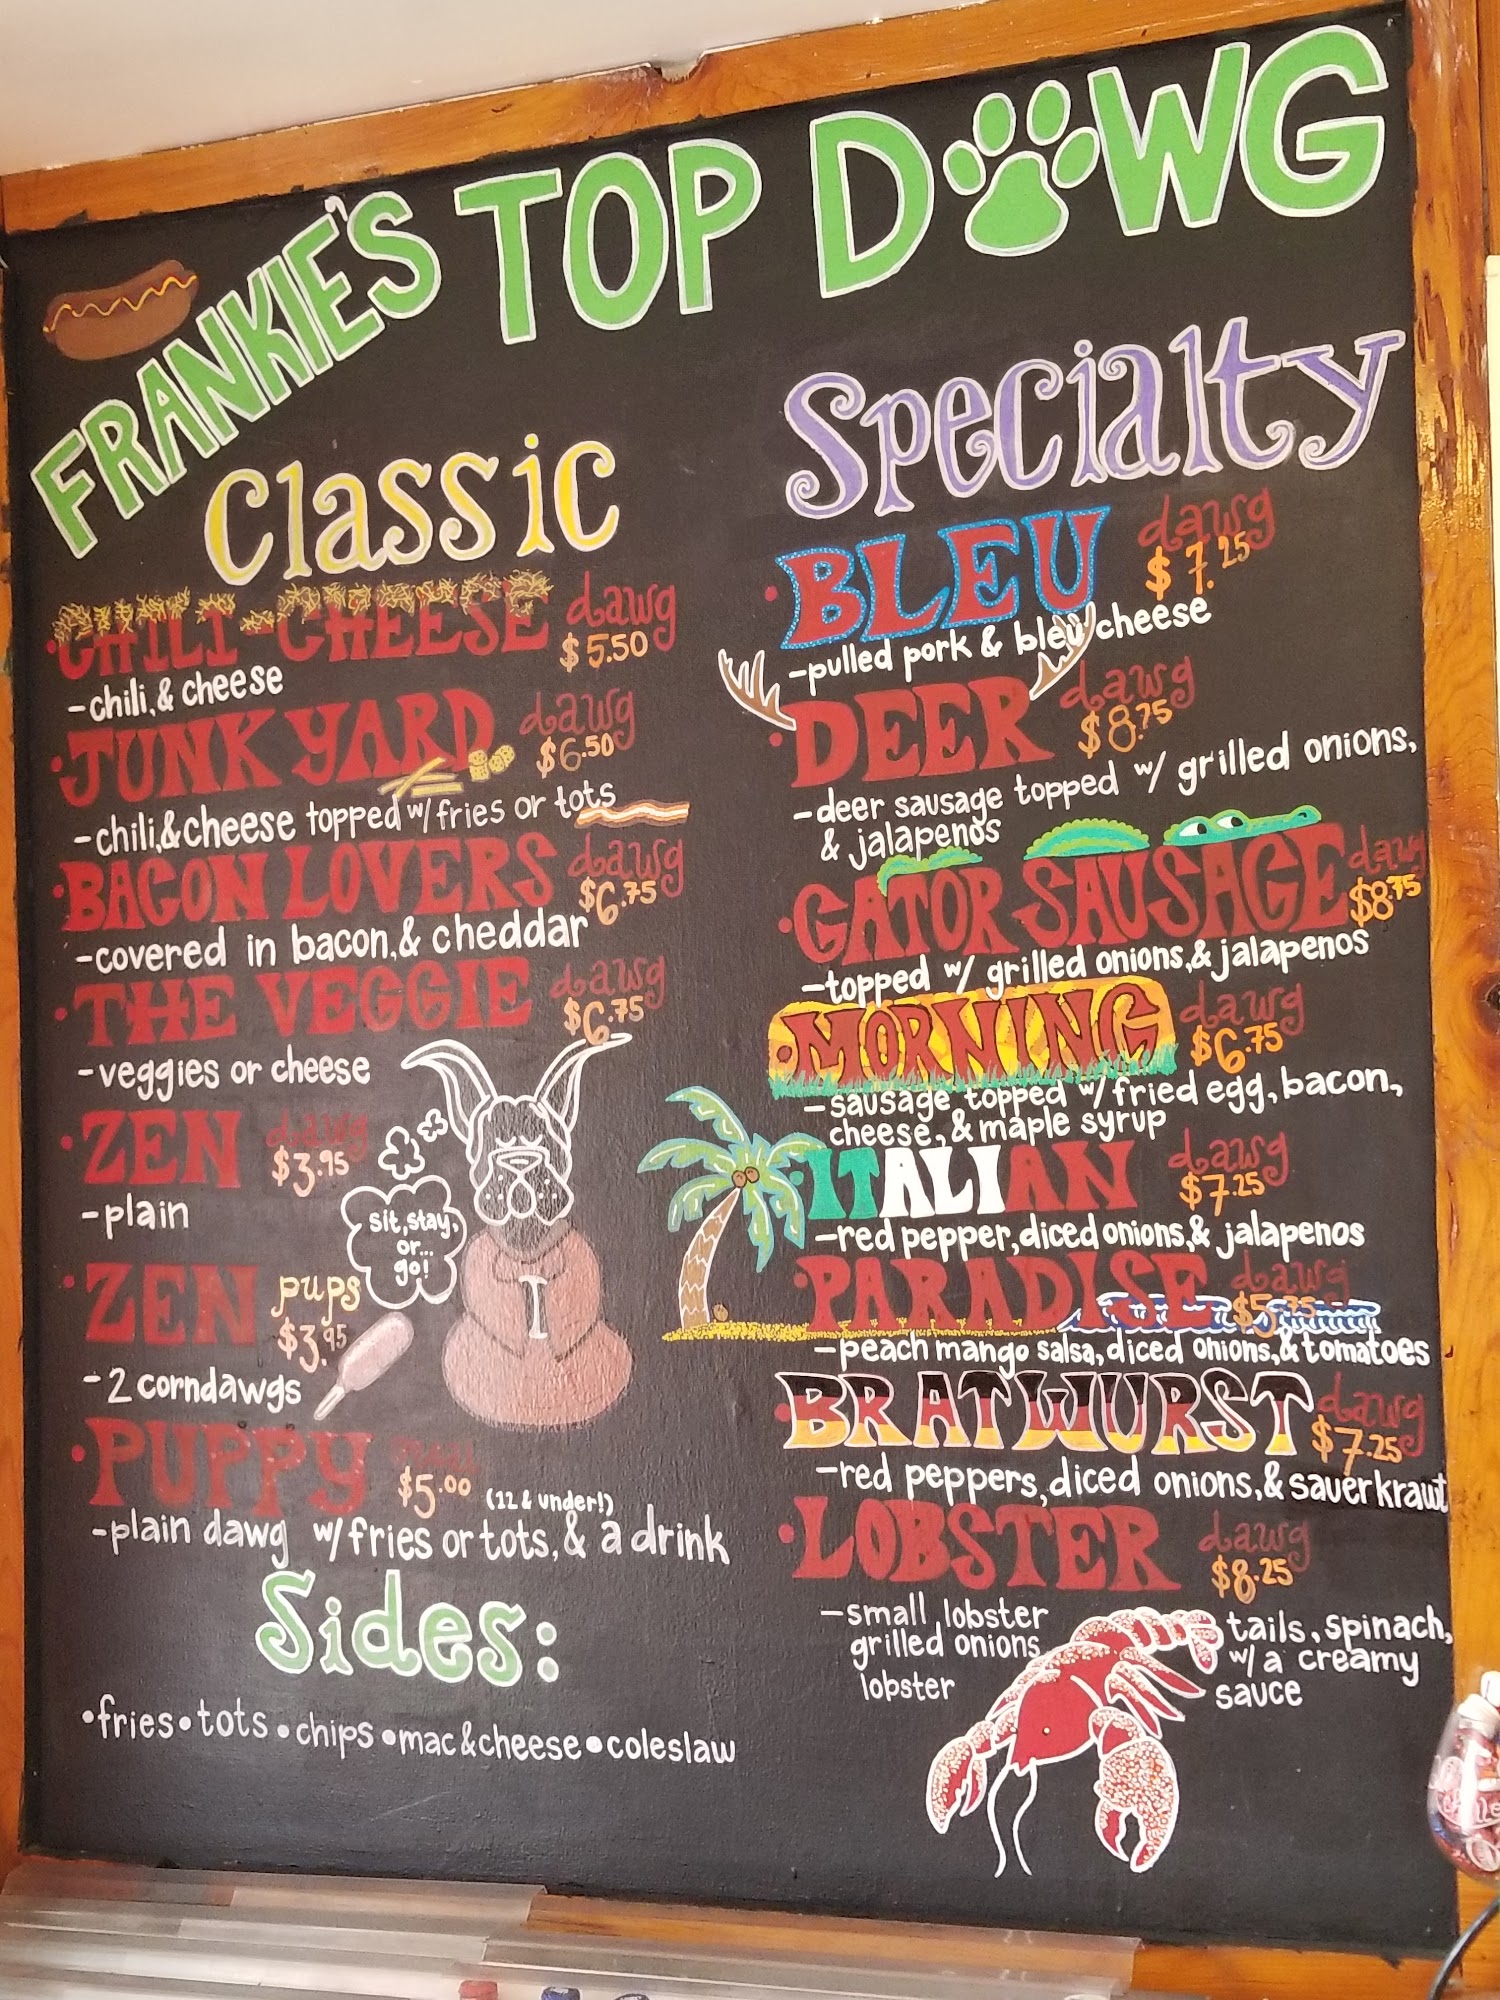 FRANKIE'S TOP DAWG
Classic
CHILI-CHEESE dawg
$5.50
-chili, & cheese
JUNK YARD dawg
$6.50
-chili, & cheese topped w/ fries or tots
BACON LOVERS dawg
$6.75
-covered in bacon, & cheddar
THE VEGGIE dawg
$6.75
-veggies or cheese
ZEN dawg
$3.95
-plain
sit, stay,
or...
go!
ZEN pups
$3.95
-2 corndawgs
PUPPY
$5.00 (12 & under!)
-plain dawg w/ fries or tots, & a drink
Sides:
•fries•tots•chips•mac&cheese•coleslaw
Specialty
BLEU dawg
$7.25
-pulled pork & bleu cheese
DEER dawg
$8.75
-deer sausage topped w/ grilled onions,
& jalapenos
GATOR SAUSAGE dawg
$8.75
-topped w/ grilled onions, & jalapenos
MORNING dawg
$6.75
-sausage topped w/ fried egg, bacon,
cheese, & maple syrup
ITALIAN dawg
$7.25
-red pepper, diced onions, & jalapenos
PARADISE dawg
$5.75
-peach mango salsa, diced onions, & tomatoes
BRATWURST dawg
$7.25
-red peppers, diced onions, & sauerkraut
LOBSTER dawg
$8.25
-small lobster tails, spinach,
grilled onions w/ a creamy
lobster sauce